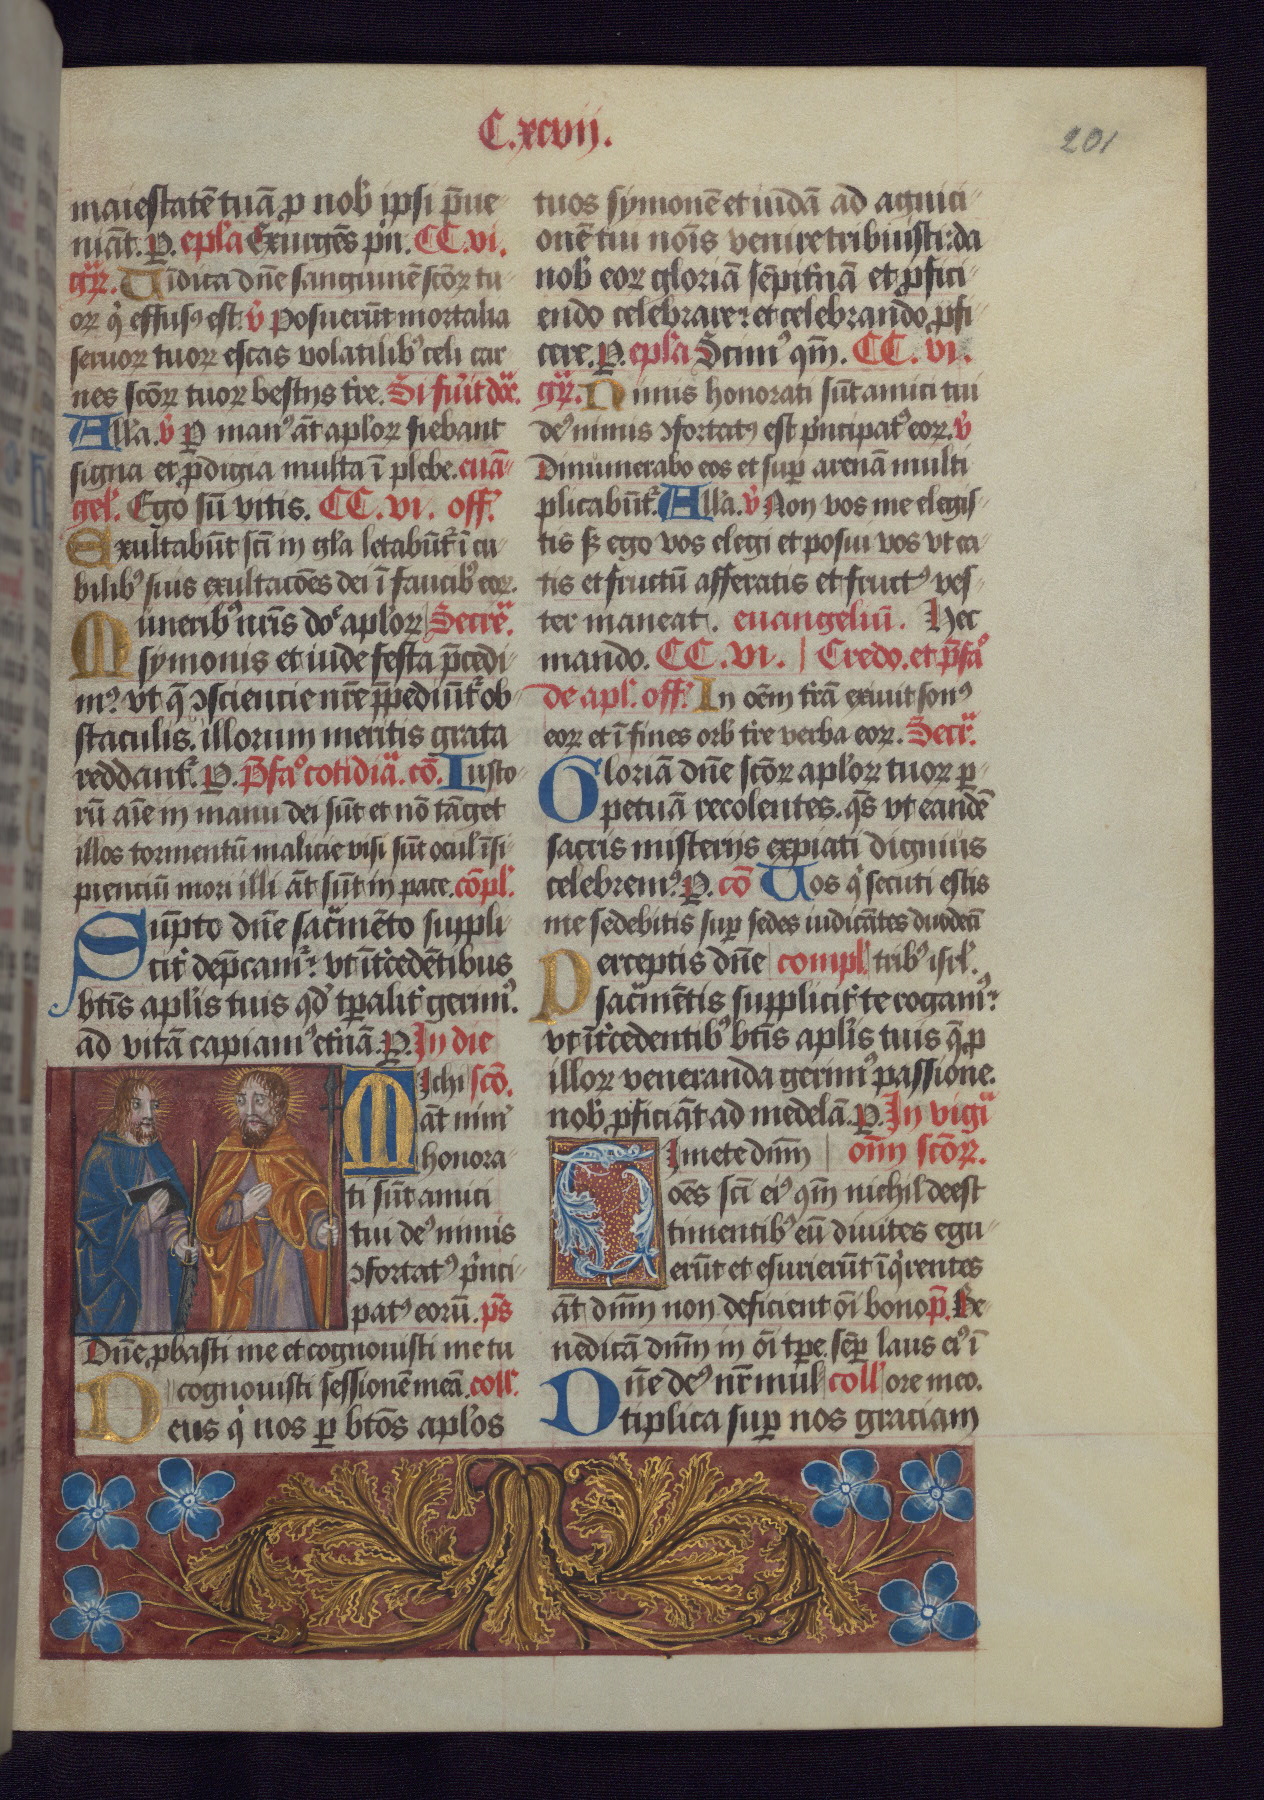 C.xcvij.
201
maiestatē tuā ꝓ nob̄ ipsi p̄ue-
niāt. P. ep̄la Exurgēs p̄n. CC.vi.
gr̄. Uīdica dn̄e sanguinē sc̄oꝝ tu-
oꝝ q̇ effusꝰ est. v̄ Posuerūt mortalia
seruoꝝ tuoꝝ escas volatilibꝰ celi car
nes sc̄oꝝ tuoꝝ bestijs tr̄e. Si fūit dōr.
Allā. v̄ P manꝰ āt aplōꝝ fiebant
signa et ꝓdigia multa ī plebe. euā-
gel̄. Ego sū vitis. CC.vi. off.
Exultabūt sc̄i in gl̄a letabūt̄ ī cu-
bilibꝰ suis exultacōes dei ī faucibꝰ eoꝝ.
Muneribꝰ nr̄is dōe aplōꝝ Secre.
symonis et iude festa p̄cedi-
mꝰ vt q̄ ꝯsciencie nr̄e p̄pediūt̄ ob-
staculis. illorum meritis grata
reddant̄. P. P̄faº cotidiā. cō. Iusto-
rū aīe in manu dei sūt et nō tāget
illos tormentū malicie visi sūt ocul̄ īsi-
pienciū mori illi āt sūt in pace. cōpl̄.
Sūpto dn̄e sac̄mēto suppli-
cit̄ dep̄camꝰ: vt īt̄cedētibus
bt̄is aplīs tuis qd̄ tp̄alit̄ gerimꝰ.
ad vitā capiamꝰ et̄nā. P. In die
Michi sc̄o.
āt nimꝰ
honora-
ti sūt amici
tui deꝰ nimis
ꝯfortatꝰ p̄nci-
patꝰ eorū. p̄s
Dn̄e ꝓbasti me et cognouisti me tu
cognouisti sessionē meā. coll̄.
Deus q̇ nos ꝑ bt̄os aplōs
tuos symonē et iudā ad agnici-
onē tui nōis venire tribuisti: da
nob̄ eoꝝ gloriā sēpit̄nā et ꝓfici-
endo celebrare: et celebrando ꝓfi-
cere. P. ep̄la Scimꝰ qm̄. CC. vi.
gr̄. Nimis honorati sūt amici tui
deꝰ nimis ꝯfortatꝰ est p̄ncipatꝰ eoꝝ. v̄
Dinumerabo eos et suꝑ arenā multi
plicabūt̄. Allā. v̄ Non vos me elegis-
tis s̄ ego vos elegi et posui vos vt ea-
tis et fructū afferatis et fructꝰ ves-
ter maneat. euangeliū. Hec
mando. CC. vi. Credo. et p̄faº
de apl̄. off. In oēm tr̄ā exiuit sonꝰ
eoꝝ et ī fines orb̄ tr̄e verba eoꝝ. Secr̄.
Gloriā dn̄e sc̄oꝝ aplōꝝ tuoꝝ ꝑ-
petuā recolentes. q̄s vt eandē
sacris misterijs expiati dignius
celebremꝰ. P. cō Uos q̇ secuti estis
me sedebitis suꝑ sedes iudicātes duodecī
Perceptis dn̄e compl̄ tribꝰ isrl̄.
sac̄mētis supplicit̄ te rogamꝰ:
vt īt̄cedentibꝰ bt̄is aplīs tuis q̄ ꝓ
illoꝝ veneranda gerimꝰ passione.
nob̄ ꝓficiāt ad medelā. P. In vigīa
Timete dn̄m oīm sc̄oꝝ.
oēs sc̄i eiꝰ qm̄ nichil deest
timentibꝰ eū diuites egu-
erūt et esurierūt īq̇rentes
āt dn̄m non deficient ōi bono p̄. Be-
nedicā dn̄m in ōi tp̄e. sēꝑ laus eiꝰ ī
Dn̄e deꝰ nr̄ mul coll̄ ore meo.
tiplica suꝑ nos graciam